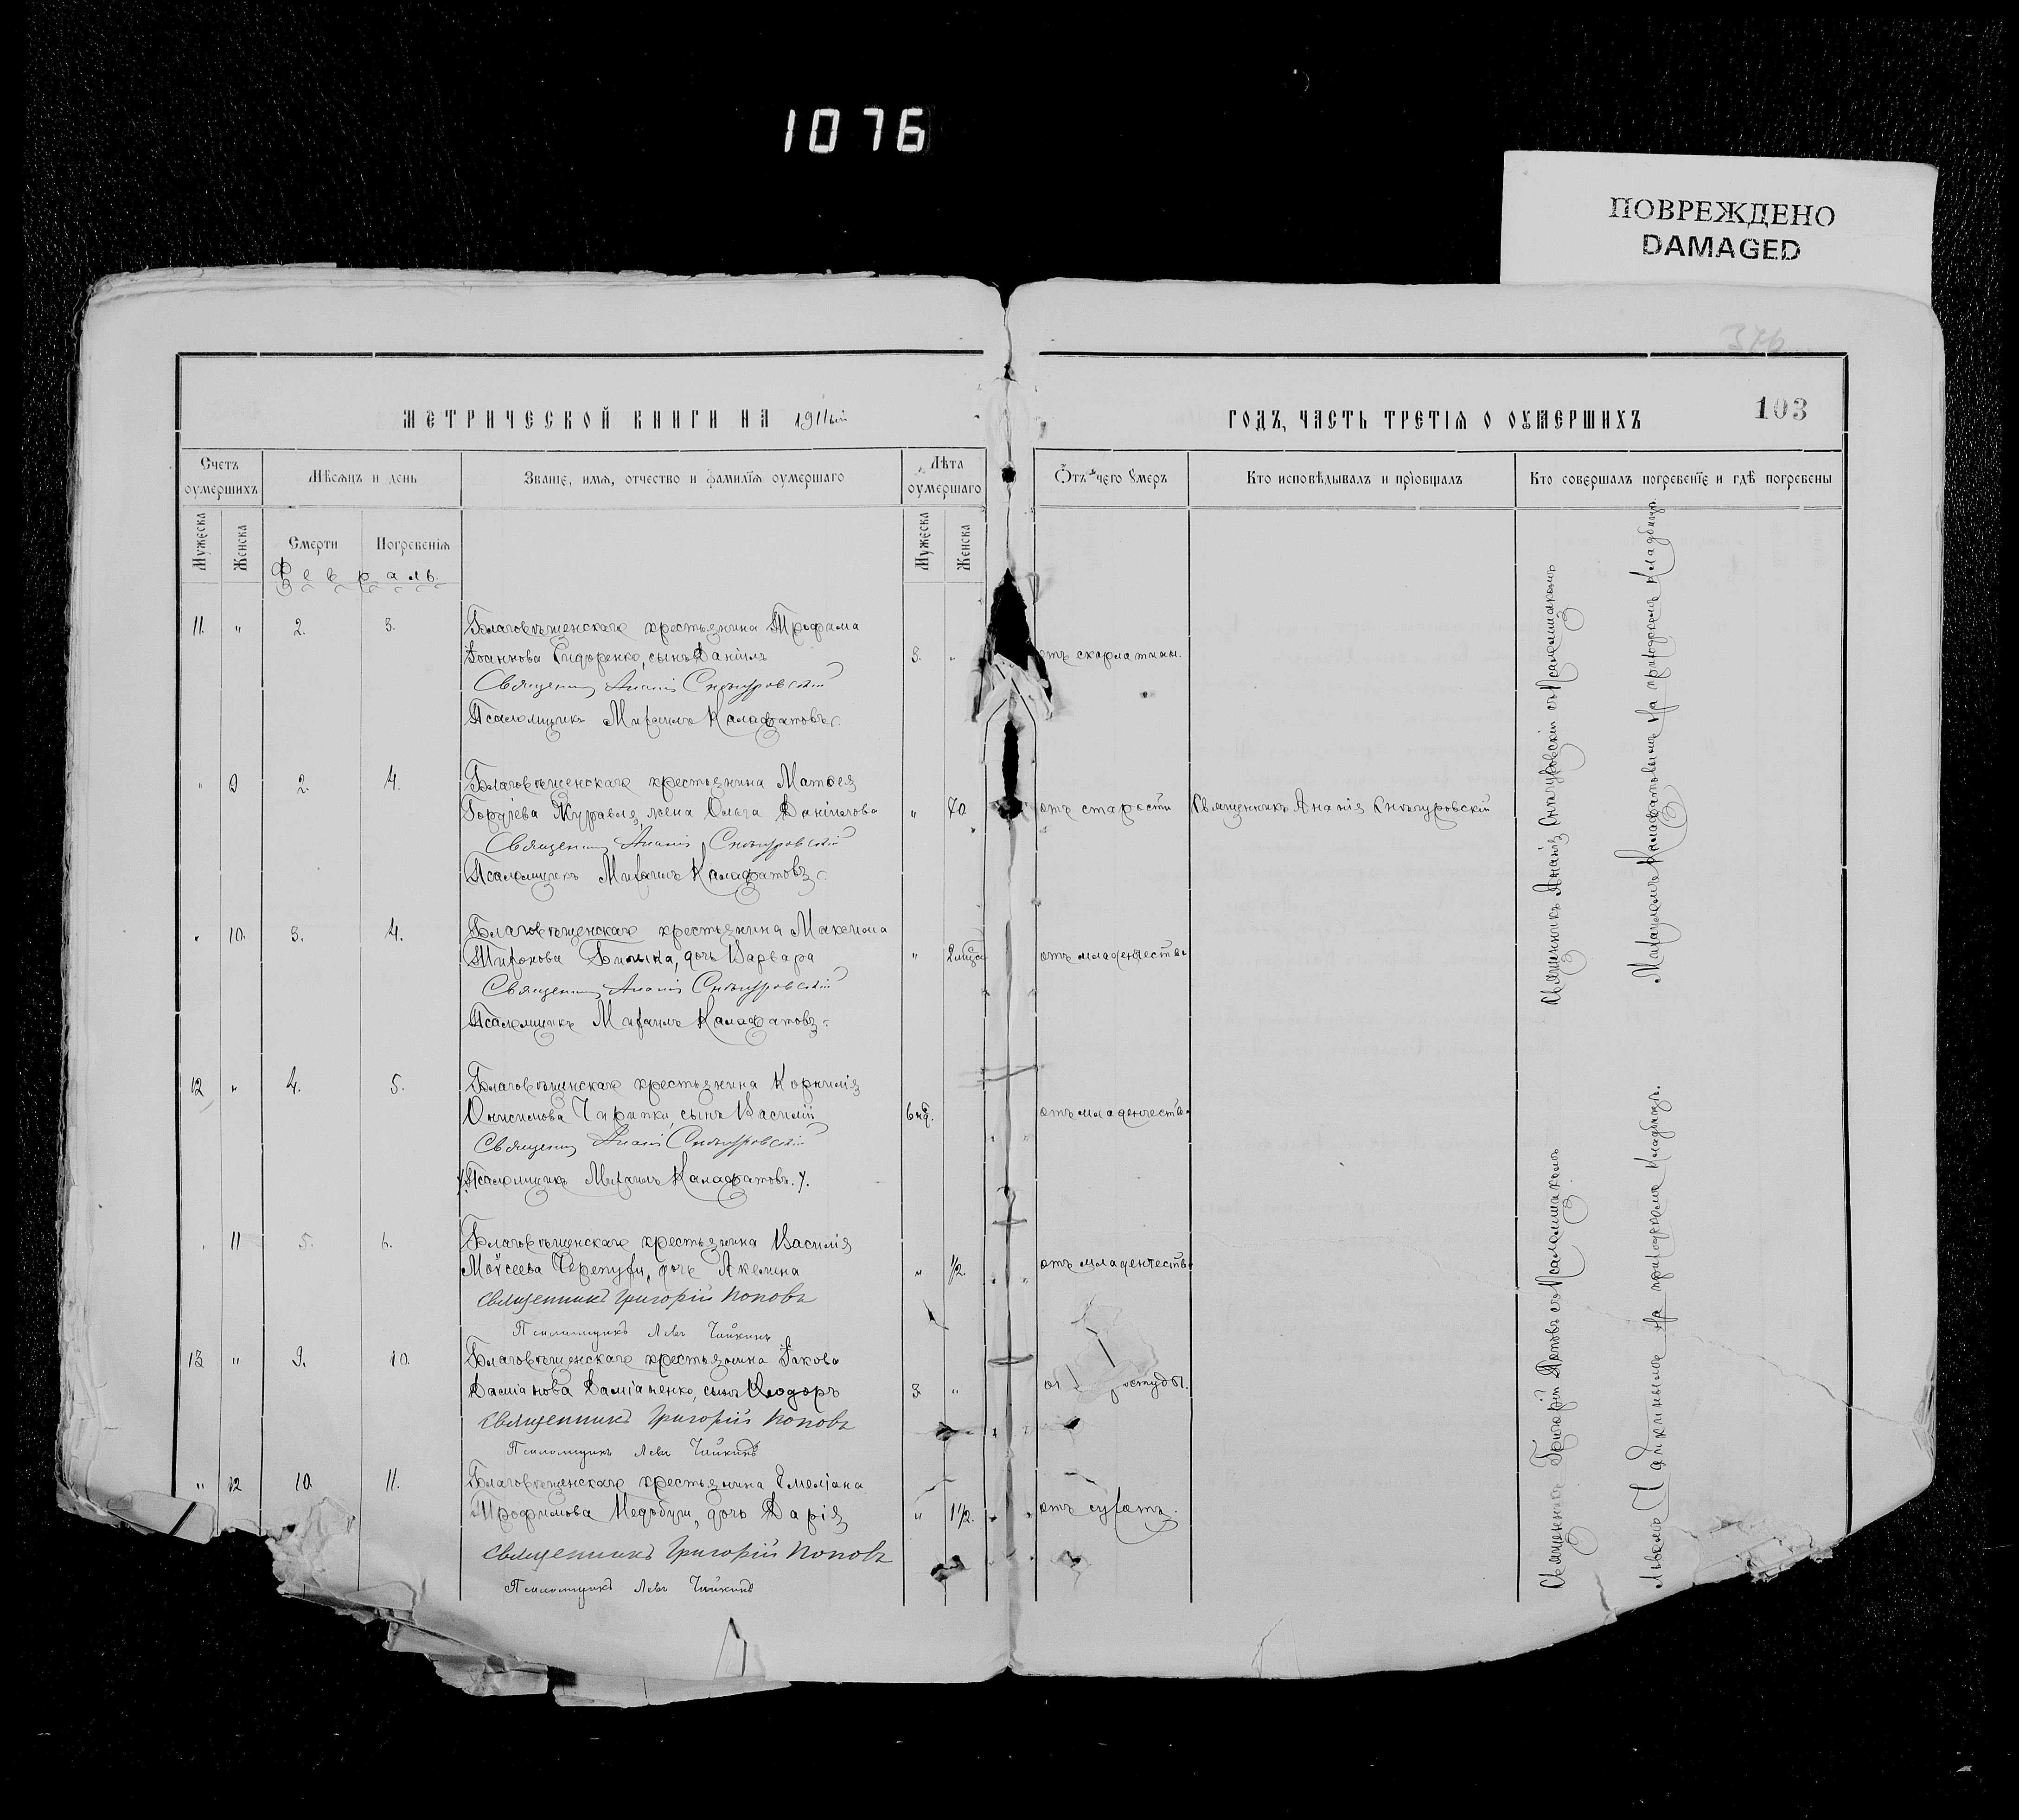 1076
ПОВРЕЖДЕНО
DAMAGED
376
МЕТРИЧЕСКОЙ КНИГИ НА 1911ый
ГОДЪ, ЧАСТЬ ТРЕТІѦ О ОУМЕРШИХЪ
103
Счетъ оумершихъ
Мѣсяцъ и день
Званіе, имя, отчество и фамилія оумершаго
Лѣта оумершаго
Отъ чего умеръ
Кто исповѣдывалъ и пріобщалъ
Кто совершалъ погребеніе и гдѣ погребены
Мужеска
Женска
Смерти
Погребенія
Мужеска
Женска
Февраль
11. " 2. 3. Благовѣщенскаго крестьянина Трофима
Іоаннова Сидоренко, сынъ Даніилъ 3. " отъ скарлатины.
Священникъ Ананій Снѣгуровскій
Псаломщикъ Михаилъ Калафатовъ
" 9 2. 4. Благовѣщенскаго крестьянина Матѳея
Журавля, жена Ольга Даніилова " 70 отъ старости Священникъ Ананія Снѣгуровскій
Священникъ Ананій Снѣгуровскій
Псаломщикъ Михаилъ Калафатовъ
" 10. 3. 4. Благовѣщенскаго крестьянина Максима
Тихонова дочь Варвара " отъ младенчества
Священникъ Ананій Снѣгуровскій
Псаломщикъ Михаилъ Калафатовъ
12 " 4. 5. Благовѣщенскаго крестьянина Корнилія
Онисимова сынъ Василій 6 нед. отъ младенчества
Священникъ Ананій Снѣгуровскій
Псаломщикъ Михаилъ Калафатовъ
" 11 5. 6. Благовѣщенскаго крестьянина Василія
Моѵсеева дочь Акелина " 1/2. отъ младенчества
Священникъ Григорій Поповъ
Псаломщикъ Левъ Чайкинъ
13 " 9. 10. Благовѣщенскаго крестьянина Іакова
Даміанова Даміаненко, сынъ Ѳеодоръ 3 "
Священникъ Григорій Поповъ
Псаломщикъ Левъ Чайкинъ
" 12 10. 11. Благовѣщенскаго крестьянина Емеліана
Трофимова дочь Дарія " 1 1/2. отъ сухотъ.
Священникъ Григорій Поповъ
Псаломщикъ Левъ Чайкинъ
Священникъ Ананія Снѣгуровскій съ Псаломщикомъ
Михаиломъ Калафатовымъ на приходскомъ кладбищѣ.
Священникъ Григорій Поповъ съ Псаломщикомъ
Львомъ Чайкинымъ на приходскомъ кладбищѣ.